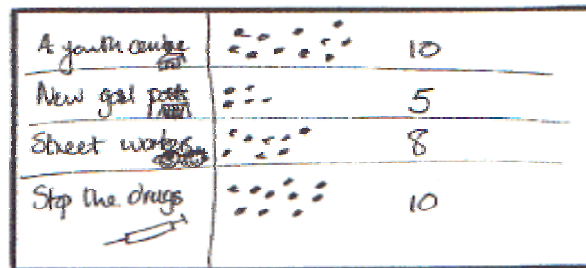 A youth centre 10
New goal posts 5
Street workers 8
Stop the drugs 10